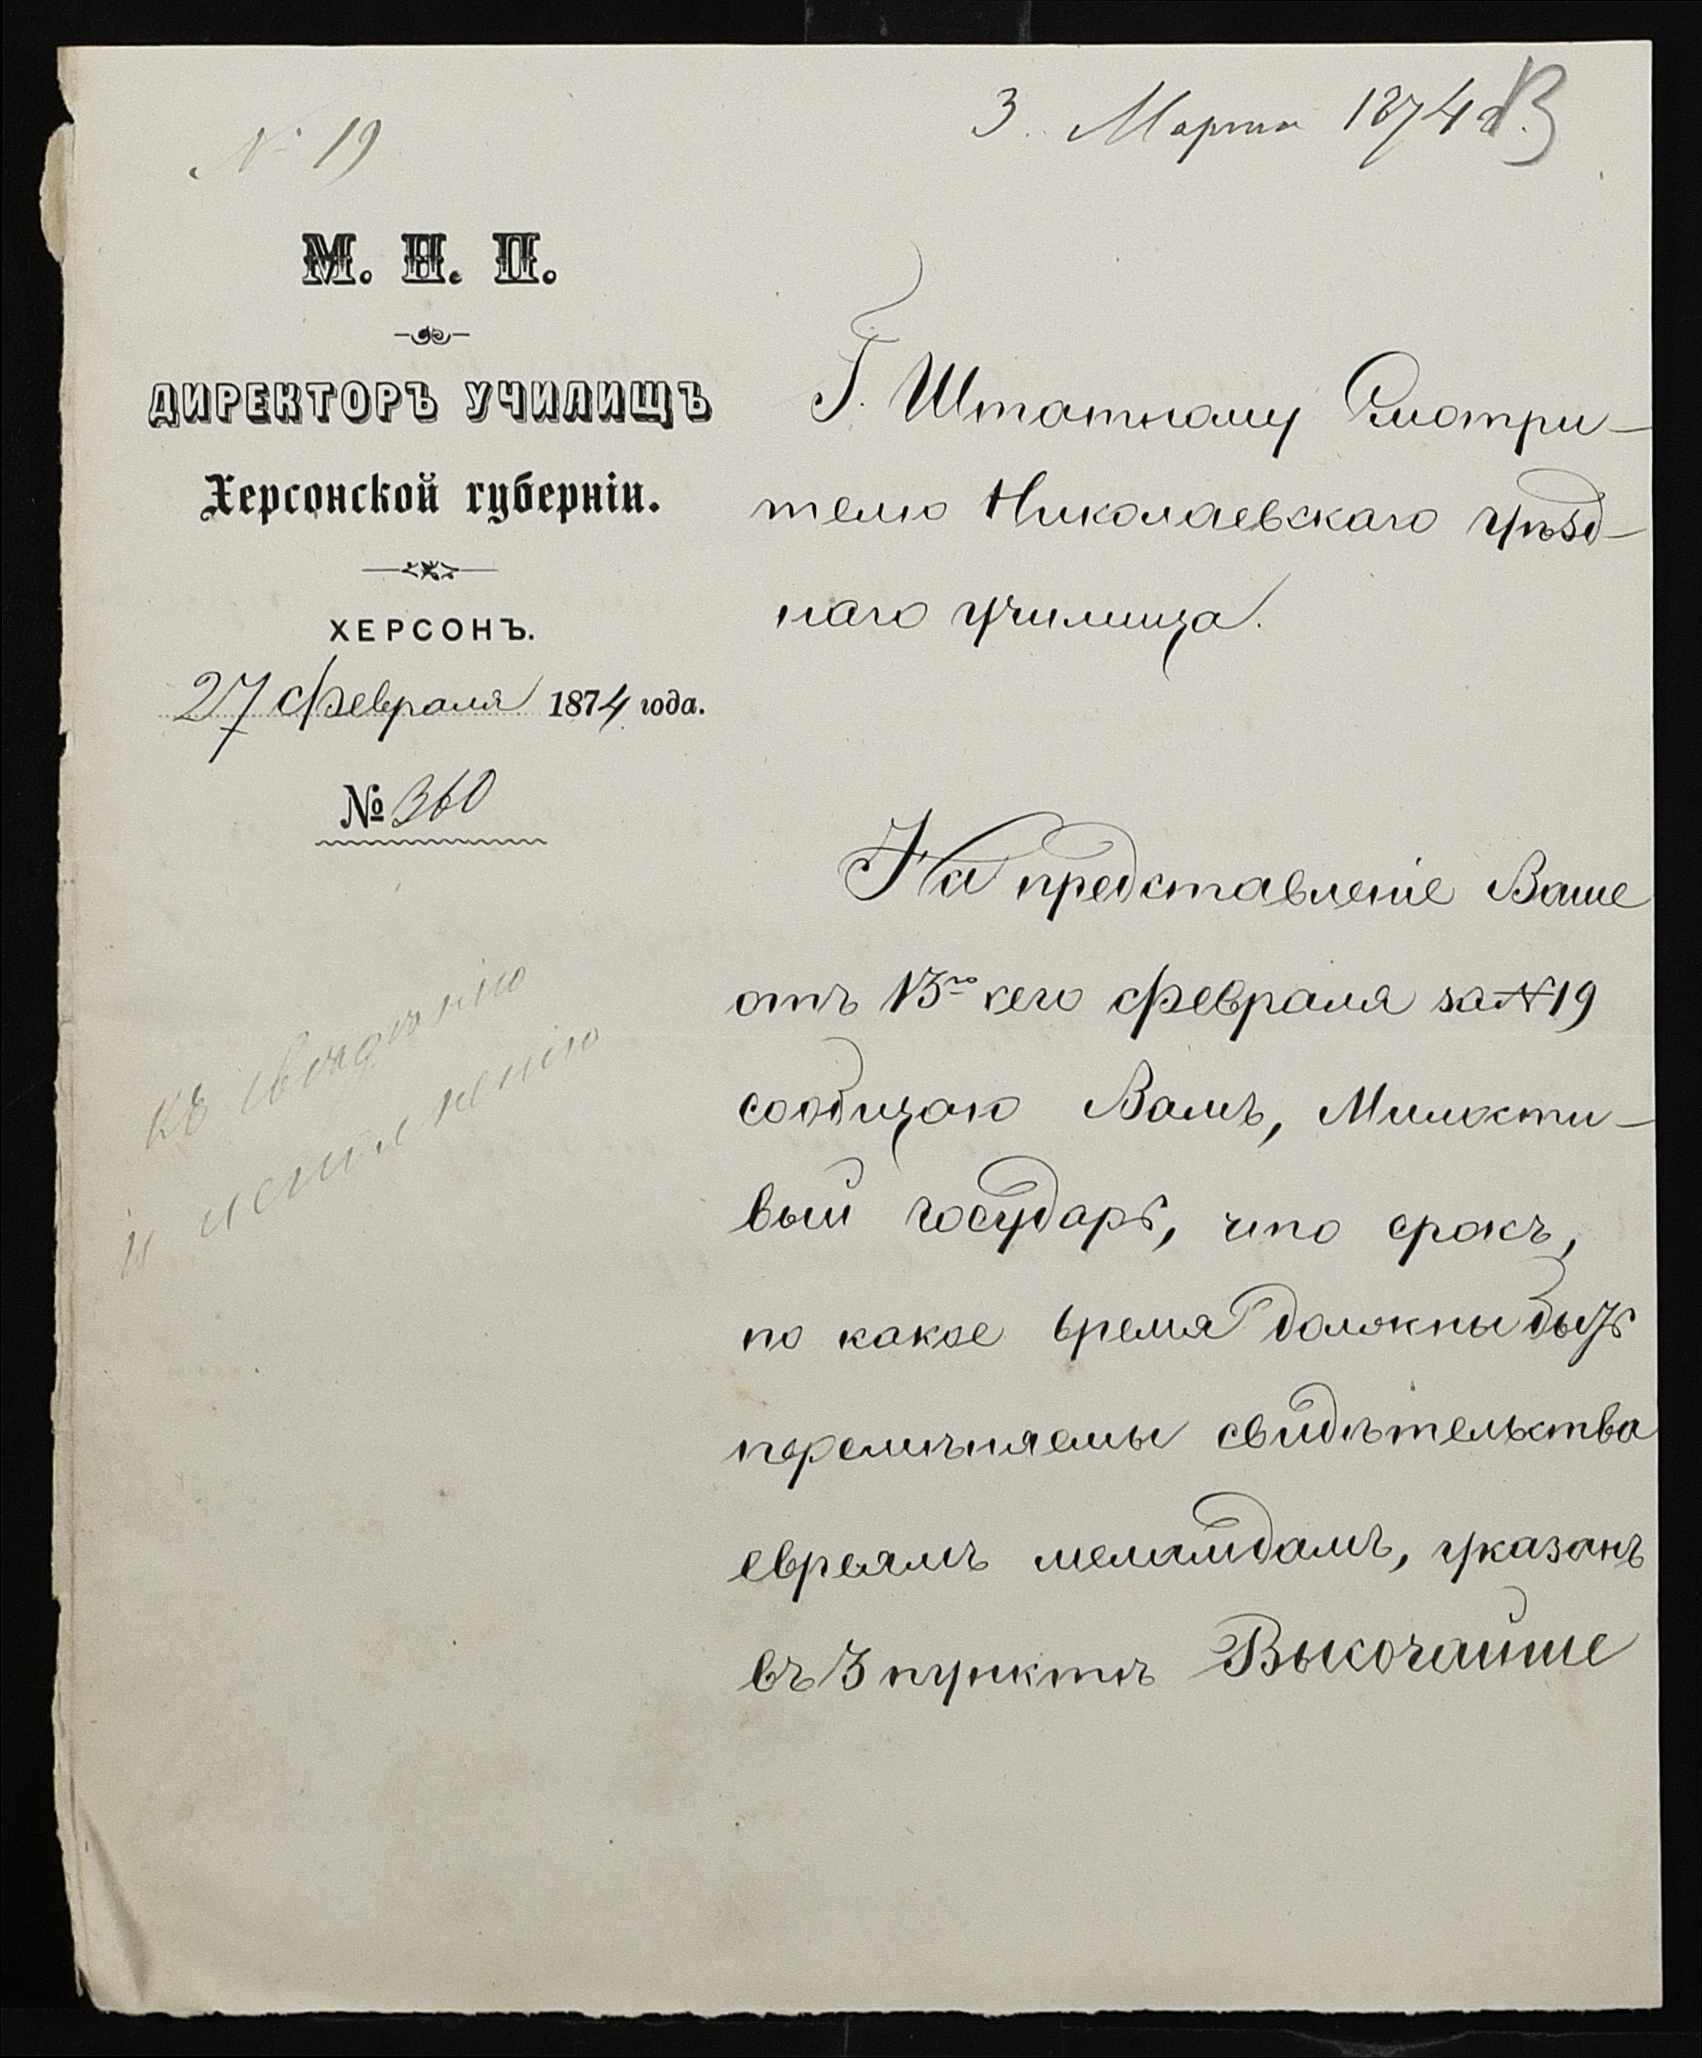 № 19
3. Марта 1874 г.
М. Н. П.
ДИРЕКТОРЪ УЧИЛИЩЪ
Херсонской губерніи.
ХЕРСОНЪ.
27 Февраля 1874 года.
№ 360
Г. Штатному Смотри-
телю Николаевскаго уѣзд-
наго училища.
На представленіе Ваше
отъ 13го сего Февраля за № 19
сообщаю Вамъ, Милости-
вый Государь, что срокъ,
по какое время должны быть
перемѣняемы свидѣтельства
евреямъ меламдамъ, указанъ
въ 3 пунктѣ Высочайше
къ свѣдѣнію
и исполненію